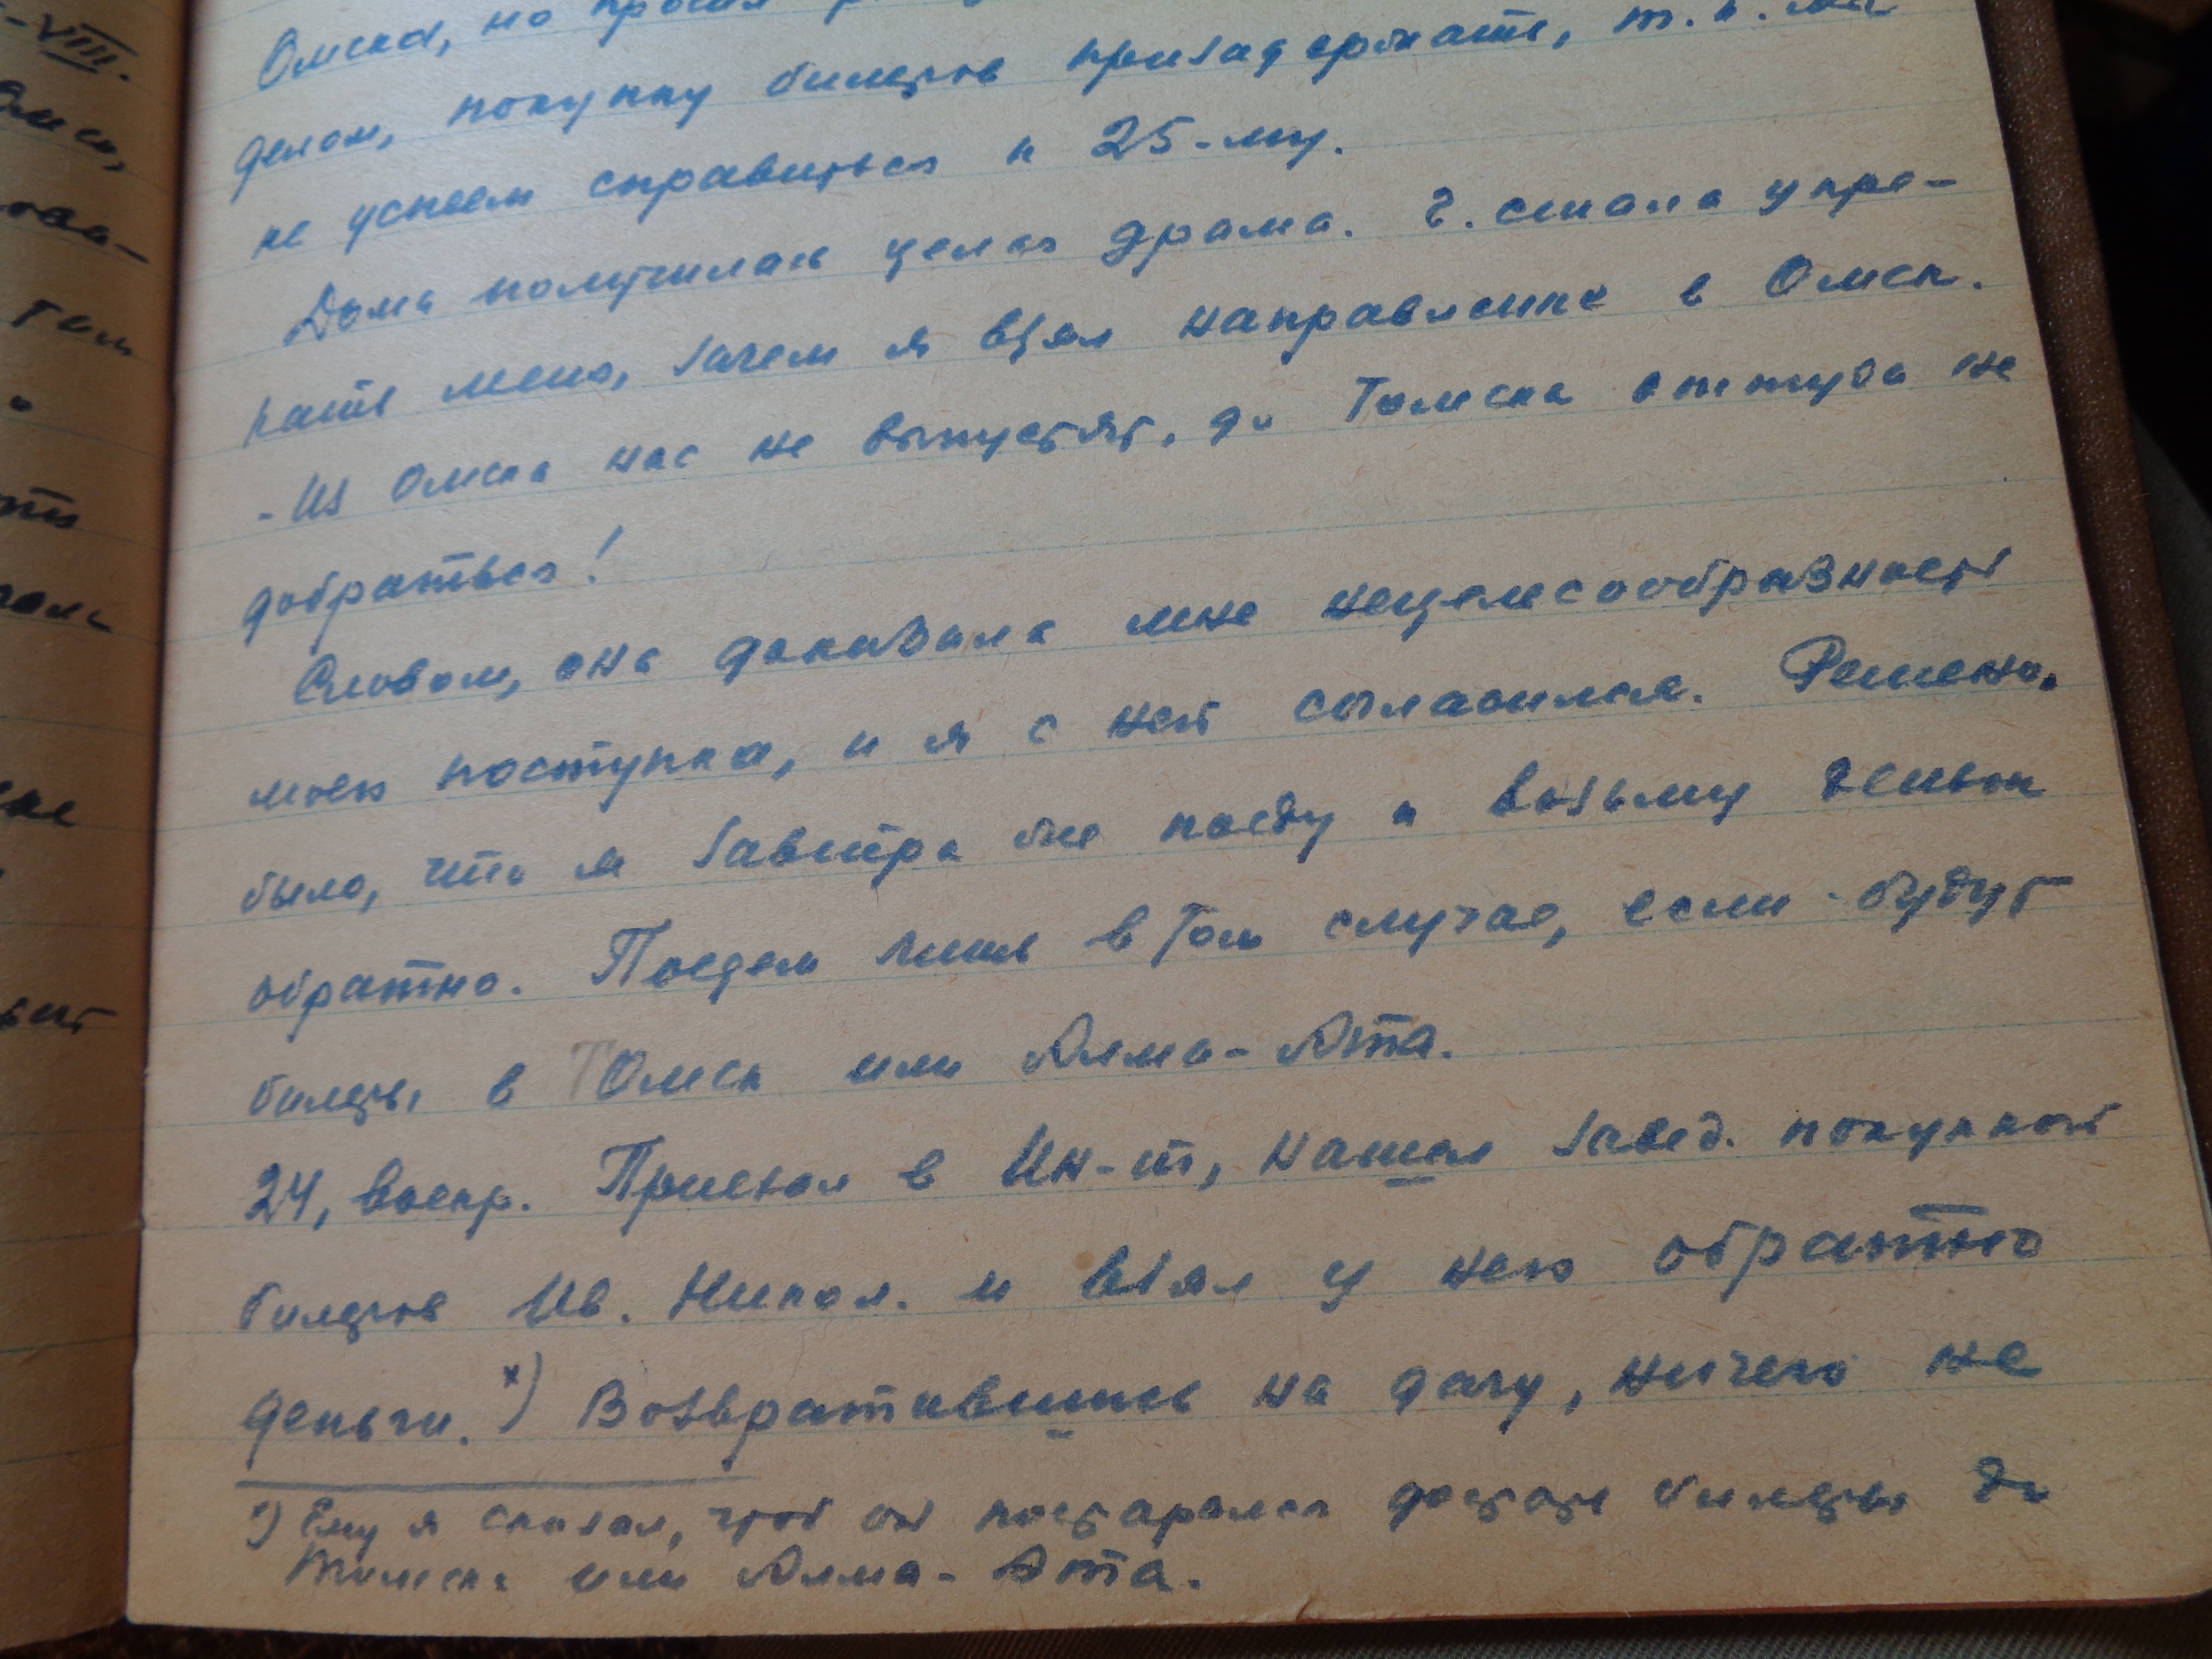 VIII.
Омска, но просил
делом, покупку билетов призадержать, т. к. мы
не успеем справиться к 25-му.
Дома получилась целая драма. Г. стала упре-
кать меня, зачем я взял направление в Омск.
- Из Омска нас не выпустят, до Томска оттуда не
добраться!
Словом, она доказала мне нецелесообразность
моего поступка, и я с ней согласился. Решено
было, что я завтра же поеду и возьму деньги
обратно. Поедем лишь в том случае, если будут
билеты в Томск или Алма-Ата.
24, воскр. Приехал в Ин-т, нашел завед. покупкой
билетов Ив. Никол. и взял у него обратно
деньги. *) Возвратившись на дачу, ничего не
*) Ему я сказал, чтоб он постарался достать билеты до
Томска или Алма-Ата.